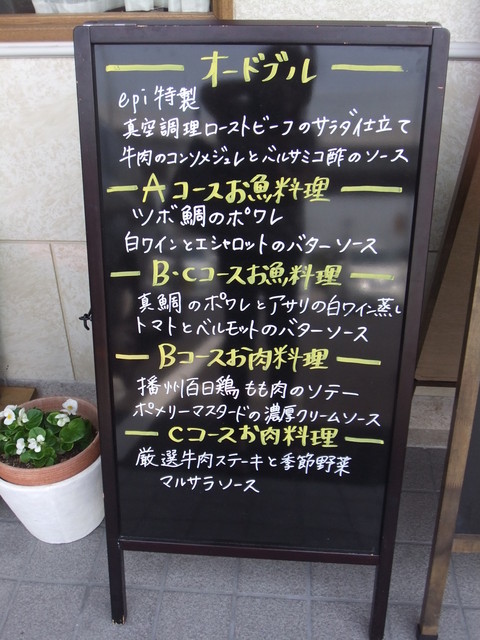 オードブル
epi特製
真空調理ローストビーフのサラダ仕立て
牛肉のコンソメジュレとバルサミコ酢のソース
Aコースお魚料理
ツボ鯛のポワレ
白ワインとエシャロットのバターソース
B・Cコースお魚料理
真鯛のポワレとアサリの白ワイン蒸し
トマトとベルモットのバターソース
Bコースお肉料理
播州百日鶏もも肉のソテー
ポメリーマスタードの濃厚クリームソース
Cコースお肉料理
厳選牛肉ステーキと季節野菜
マルサラソース